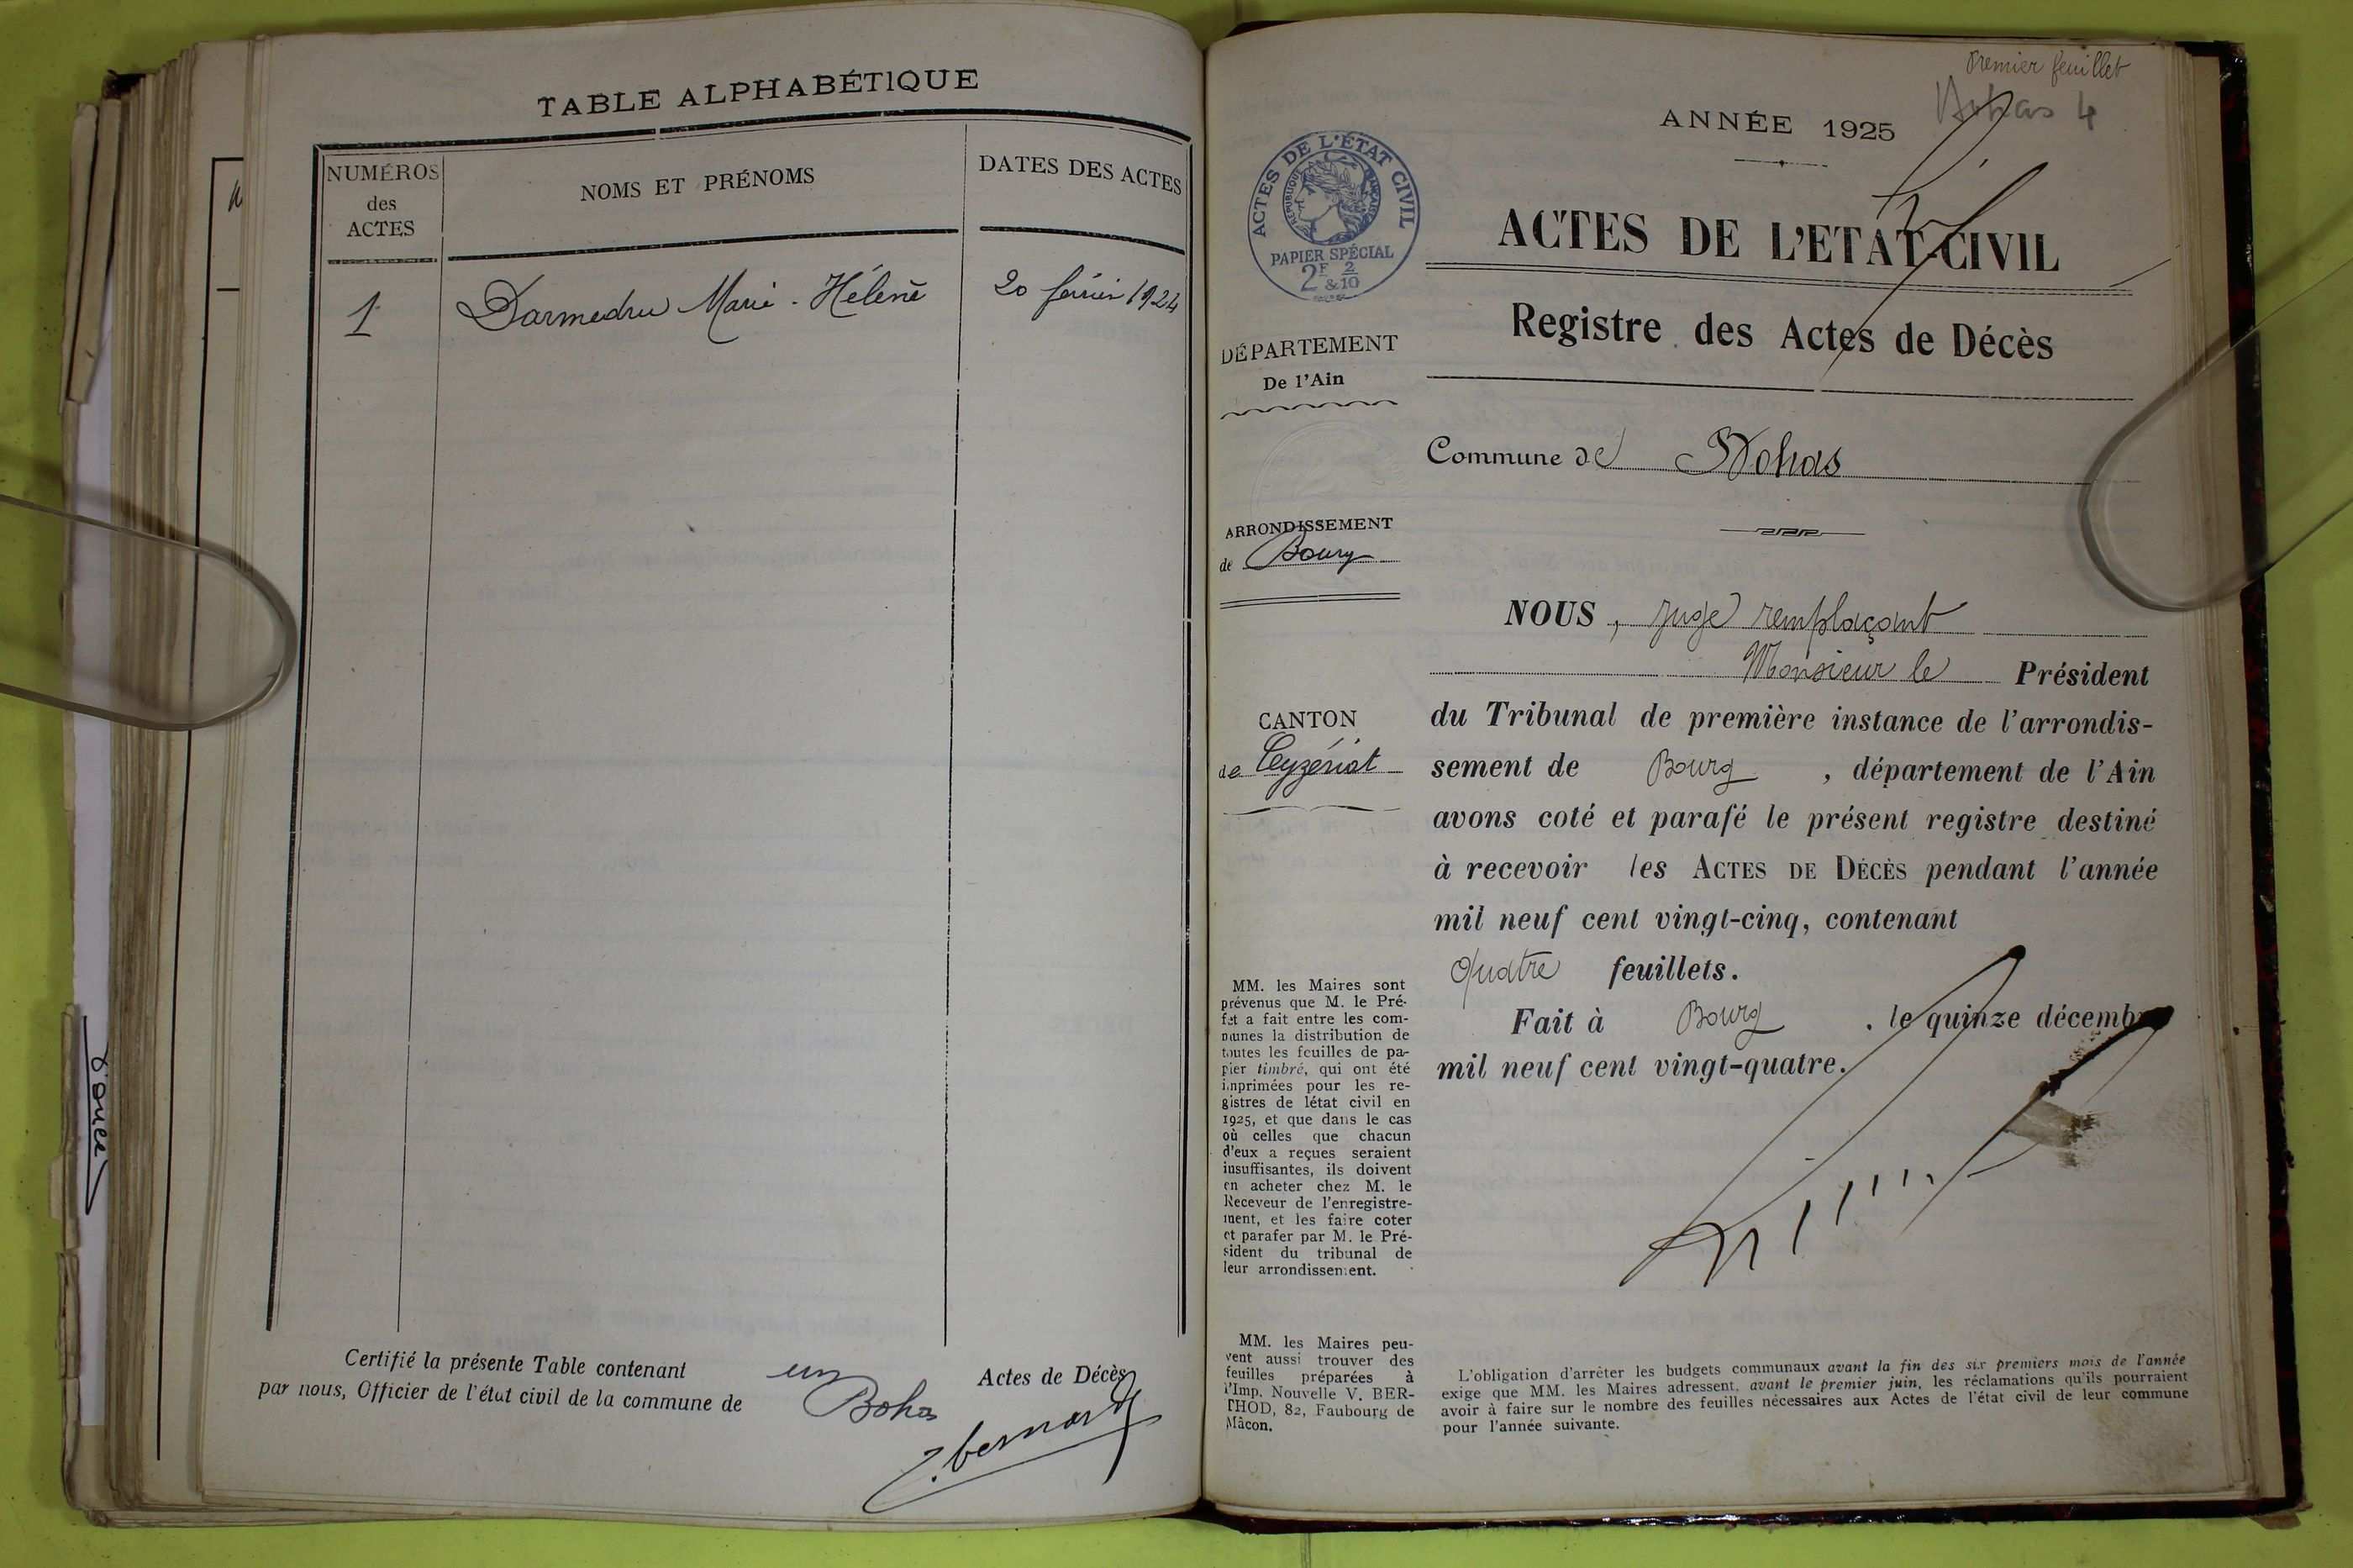 TABLE ALPHABÉTIQUE
NUMÉROS
des
ACTES
NOMS ET PRÉNOMS
DATES DES ACTES
1
Darmedru Marie-Hélène
20 février 1924
Certifié la présente Table contenant un Actes de Décès
par nous, Officier de l'état civil de la commune de Bohas
bernard
Premier feuillet
Bohas 4
ANNÉE 1925
ACTES DE L'ÉTAT CIVIL
RÉPUBLIQUE FRANÇAISE
PAPIER SPÉCIAL
2F 2
&10
ACTES DE L'ETAT-CIVIL
Registre des Actes de Décès
DÉPARTEMENT
De l'Ain
Commune de Bohas
ARRONDISSEMENT
de Bourg
CANTON
de Ceyzériat
NOUS, juge remplaçant
Monsieur le Président
du Tribunal de première instance de l'arrondis-
sement de Bourg, département de l'Ain
avons coté et parafé le présent registre destiné
à recevoir les ACTES DE DÉCÈS pendant l'année
mil neuf cent vingt-cinq, contenant
Quatre feuillets.
Fait à Bourg, le quinze décembre
mil neuf cent vingt-quatre.
MM. les Maires sont
prévenus que M. le Pré-
fet a fait entre les com-
munes la distribution de
toutes les feuilles de pa-
pier timbré, qui ont été
imprimées pour les re-
gistres de létat civil en
1925, et que dans le cas
où celles que chacun
d'eux a reçues seraient
insuffisantes, ils doivent
en acheter chez M. le
Receveur de l'enregistre-
ment, et les faire coter
et parafer par M. le Pré-
sident du tribunal de
leur arrondissement.
MM. les Maires peu-
vent aussi trouver des
feuilles préparées à
l'Imp. Nouvelle V. BER-
THOD, 82, Faubourg de
Mâcon.
L'obligation d'arrêter les budgets communaux avant la fin des six premiers mois de l'année
exige que MM. les Maires adressent, avant le premier juin, les réclamations qu'ils pourraient
avoir à faire sur le nombre des feuilles nécessaires aux Actes de l'état civil de leur commune
pour l'année suivante.